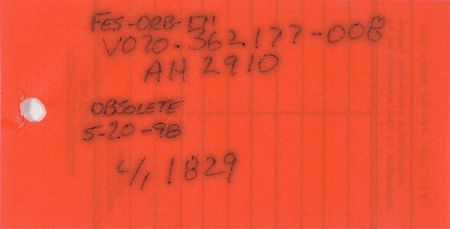 FES-ORB-171
V070-362177-008
AH 2910
OBSOLETE
5-20-98
L/1 1829